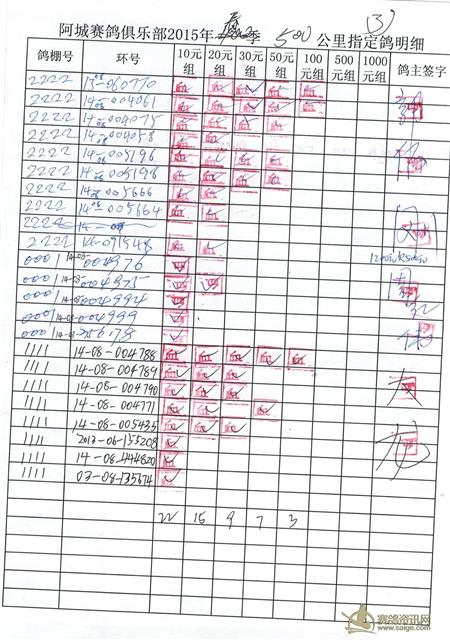 阿城赛鸽俱乐部2015年春季 500 公里指定鸽明细 (3)
鸽棚号 环号 10元组 20元组 30元组 50元组 100元组 500元组 1000元组 鸽主签字
2222 15-08-060770
2222 14-08-004061
2222 14-08-004075
2222 14-08-004058
2222 14-08-005196
2222 14-08-005198
2222 14-08-005666
2222 14-08-005664
2222
2222 14-091548
0001 14-08-004976
0001 14-08-004975
0001 14-08-004994
0001 14-08-004999
0001 14-08-
1111 14-08-004788
1111 14-08-004789
1111 14-08-004790
1111 14-08-004771
1111 14-08-005435
1111 2013-06-155208
1111 14-08-444820
1111 03-08-135674
22 15 9 7 3
赛鸽资讯网
www.saige.com